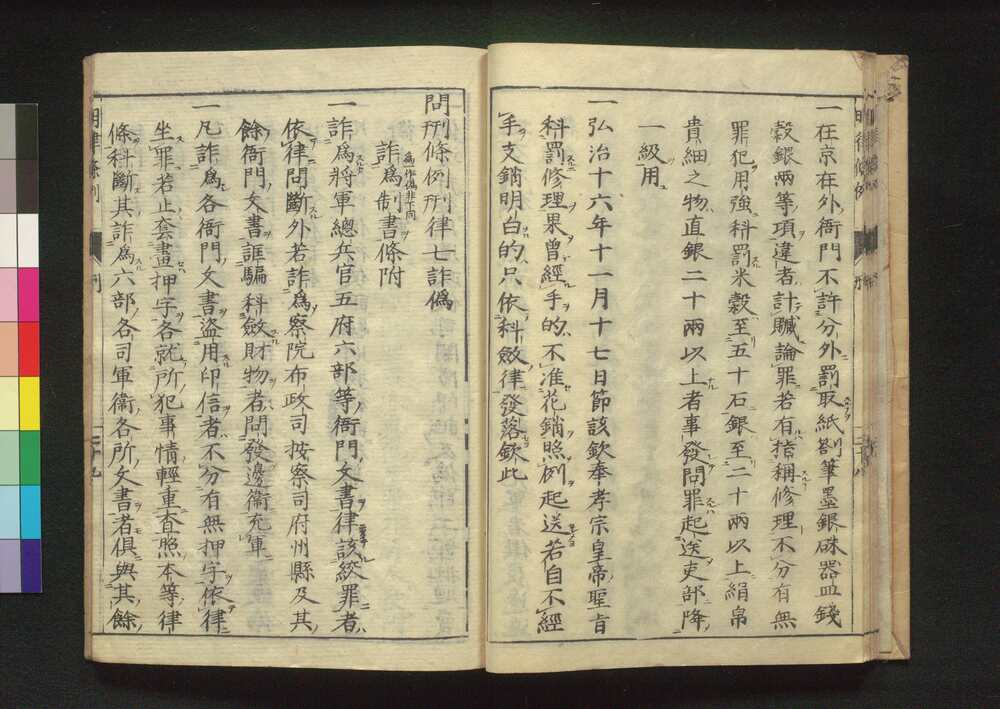 一在京在外衙門不許分外罰取紙劄筆墨銀硃器皿錢
穀銀兩等項違者計贓論罪若有指稱修理不分有無
罪犯用強科罰米穀至五十石銀至二十兩以上絹帛
貴細之物直銀二十兩以上者事發問罪起送吏部降
一級用
一弘治十六年十一月十七日節該欽奉孝宗皇帝聖旨
科罰修理果曾經手的不准花銷照例起送若自不經
手支銷明白的只依科斂律發落欽此
問刑條例刑律七詐僞
詐爲制書條附
一詐爲將軍總兵官五府六部等衙門文書律該絞罪者
依律問斷外若詐爲察院布政司按察司府州縣及其
餘衙門文書誆騙科斂財物者問發邊衞充軍
一凡詐爲各衙門文書盜用印信者不分有無押字依律
坐罪若止套畫押字各就所犯事情輕重查照本等律
條科斷其詐爲六部各司軍衞各所文書者俱與其餘